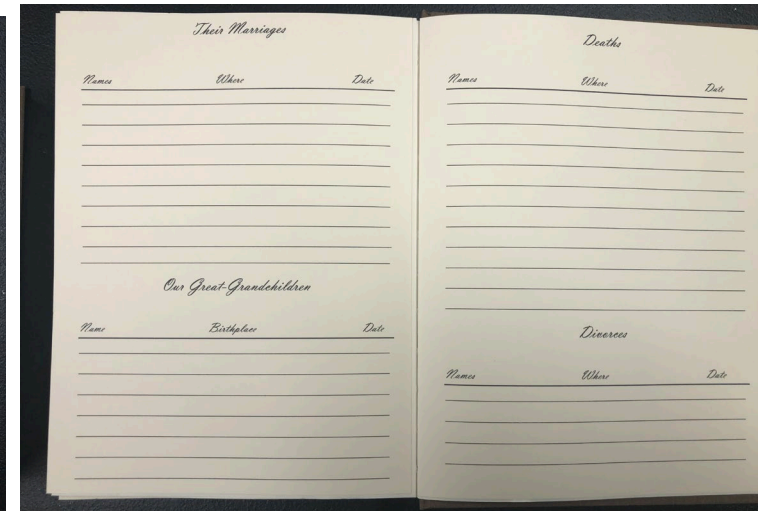 Their Marriages
Names Where Date
Our Great-Grandchildren
Name Birthplace Date
Deaths
Names Where Date
Divorces
Names Where Date